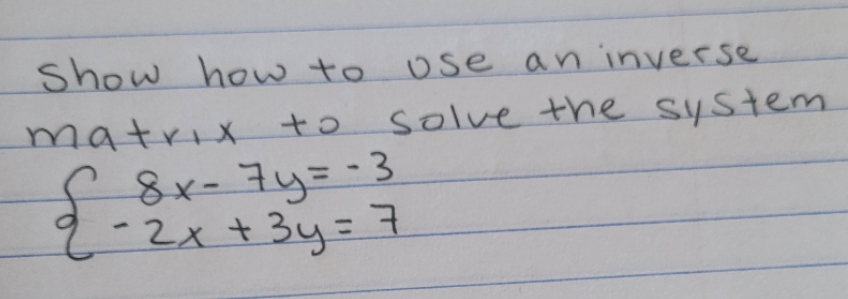 Show how to use an inverse
matrix to solve the system
8x - 7y = -3
-2x + 3y = 7